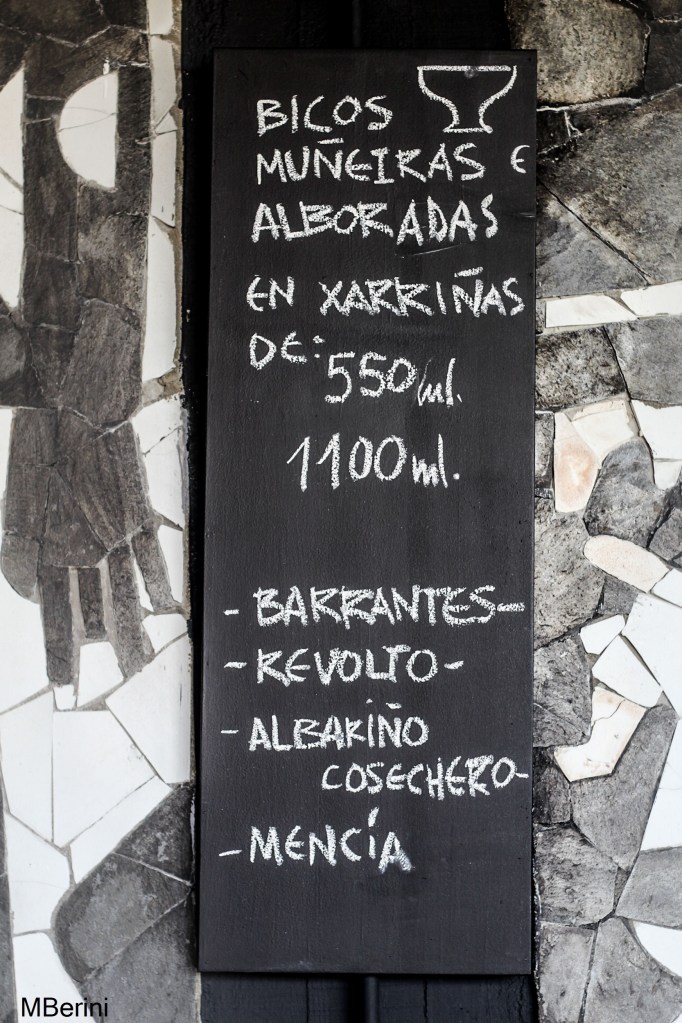 BICOS
MUÑEIRAS E
ALBORADAS
EN XARRIÑAS
DE:
550 ml.
1100 ml.
- BARRANTES-
- REVOLTO-
- ALBARIÑO
COSECHERO-
- MENCÍA
MBerini